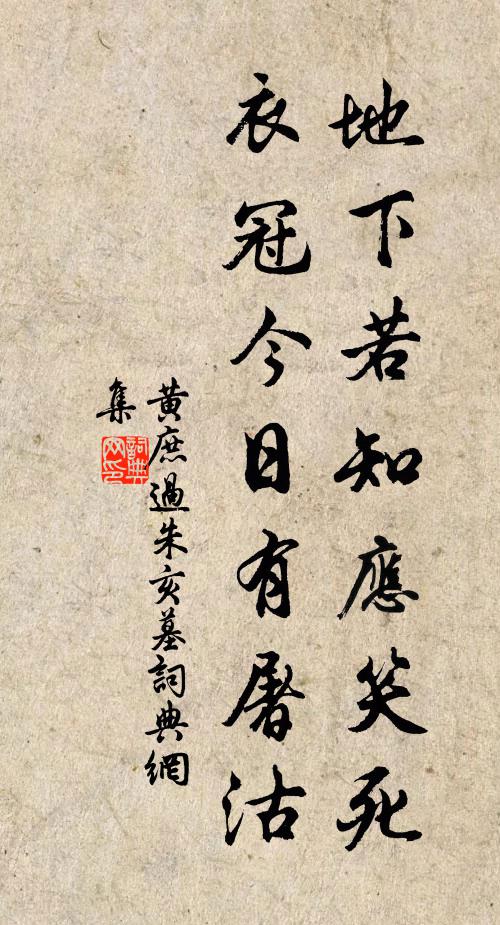 地下若知應笑死
衣冠今日有屠沽
黃庶過朱亥墓詞典網
集
詞典
网印